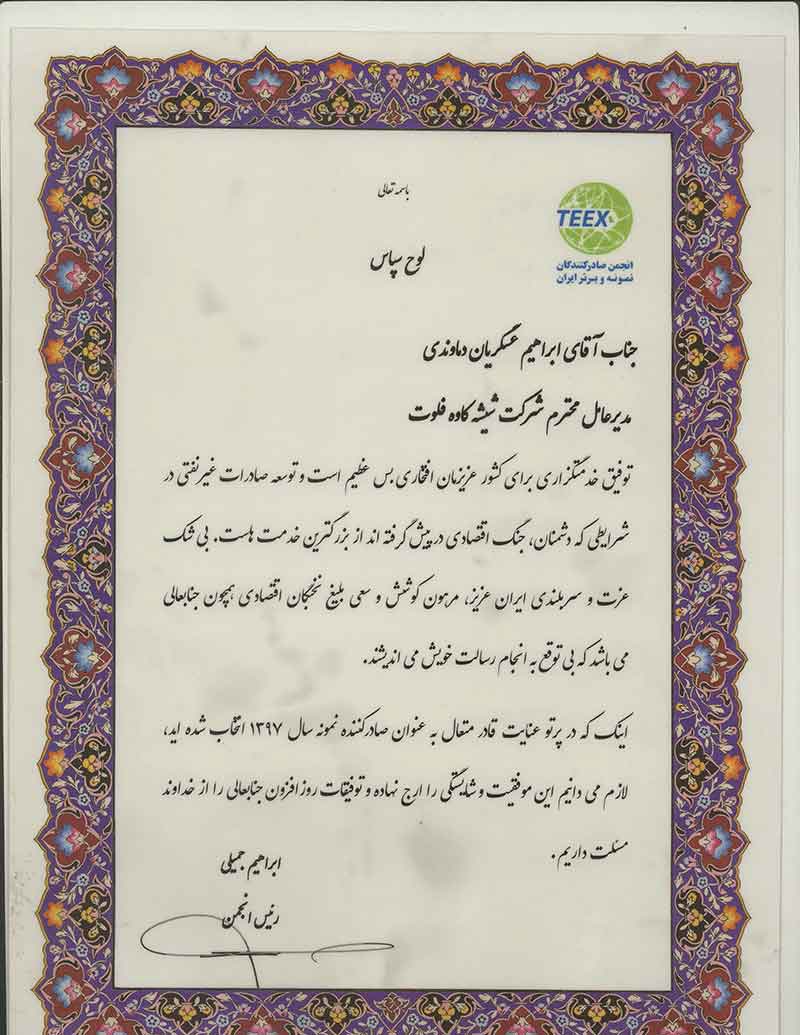 باسمه تعالی
TEEX
انجمن صادرکنندگان
نمونه و برتر ایران
لوح سپاس
جناب آقای ابراهیم عسگریان دماوندی
مدیرعامل محترم شرکت شیشه کاوه فلوت
توفیق خدمتگزاری برای کشور عزیزمان افتخاری بس عظیم است و توسعه صادرات غیرنفتی در
شرایطی که دشمنان، جنگ اقتصادی در پیش گرفته اند از بزرگترین خدمت هاست. بی شک
عزت و سربلندی ایران عزیز، مرهون کوشش و سعی بلیغ نخبگان اقتصادی همچون جنابعالی
می باشد که بی توقع به انجام رسالت خویش می اندیشند.
اینک که در پرتو عنایت قادر متعال به عنوان صادرکننده نمونه سال ۱۳۹۷ انتخاب شده اید،
لازم می دانیم این موفقیت و شایستگی را ارج نهاده و توفیقات روزافزون جنابعالی را از خداوند
مسئلت داریم.
ابراهیم جمیلی
رئیس انجمن